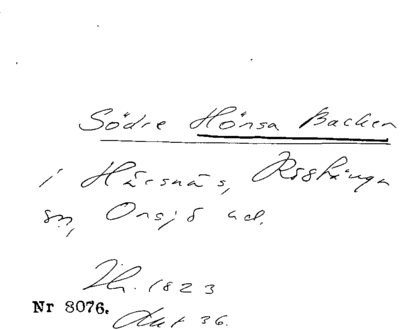 Södre Hönsa Backen
i Härsnäs, Röstånga
sn, Onsjö hd.
Th. 1823
Nr 8076.
akt 36.